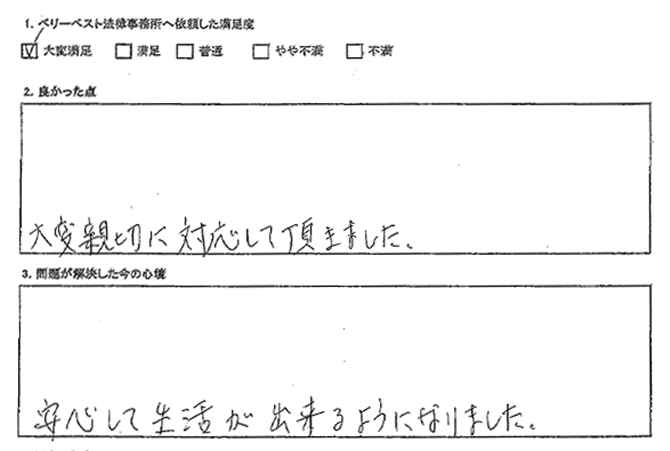 1. ベリーベスト法律事務所へ依頼した満足度
☑ 大変満足 □ 満足 □ 普通 □ やや不満 □ 不満
2. 良かった点
大変親切に対応して頂ました。
3. 問題が解決した今の心境
安心して生活が出来るようになりました。